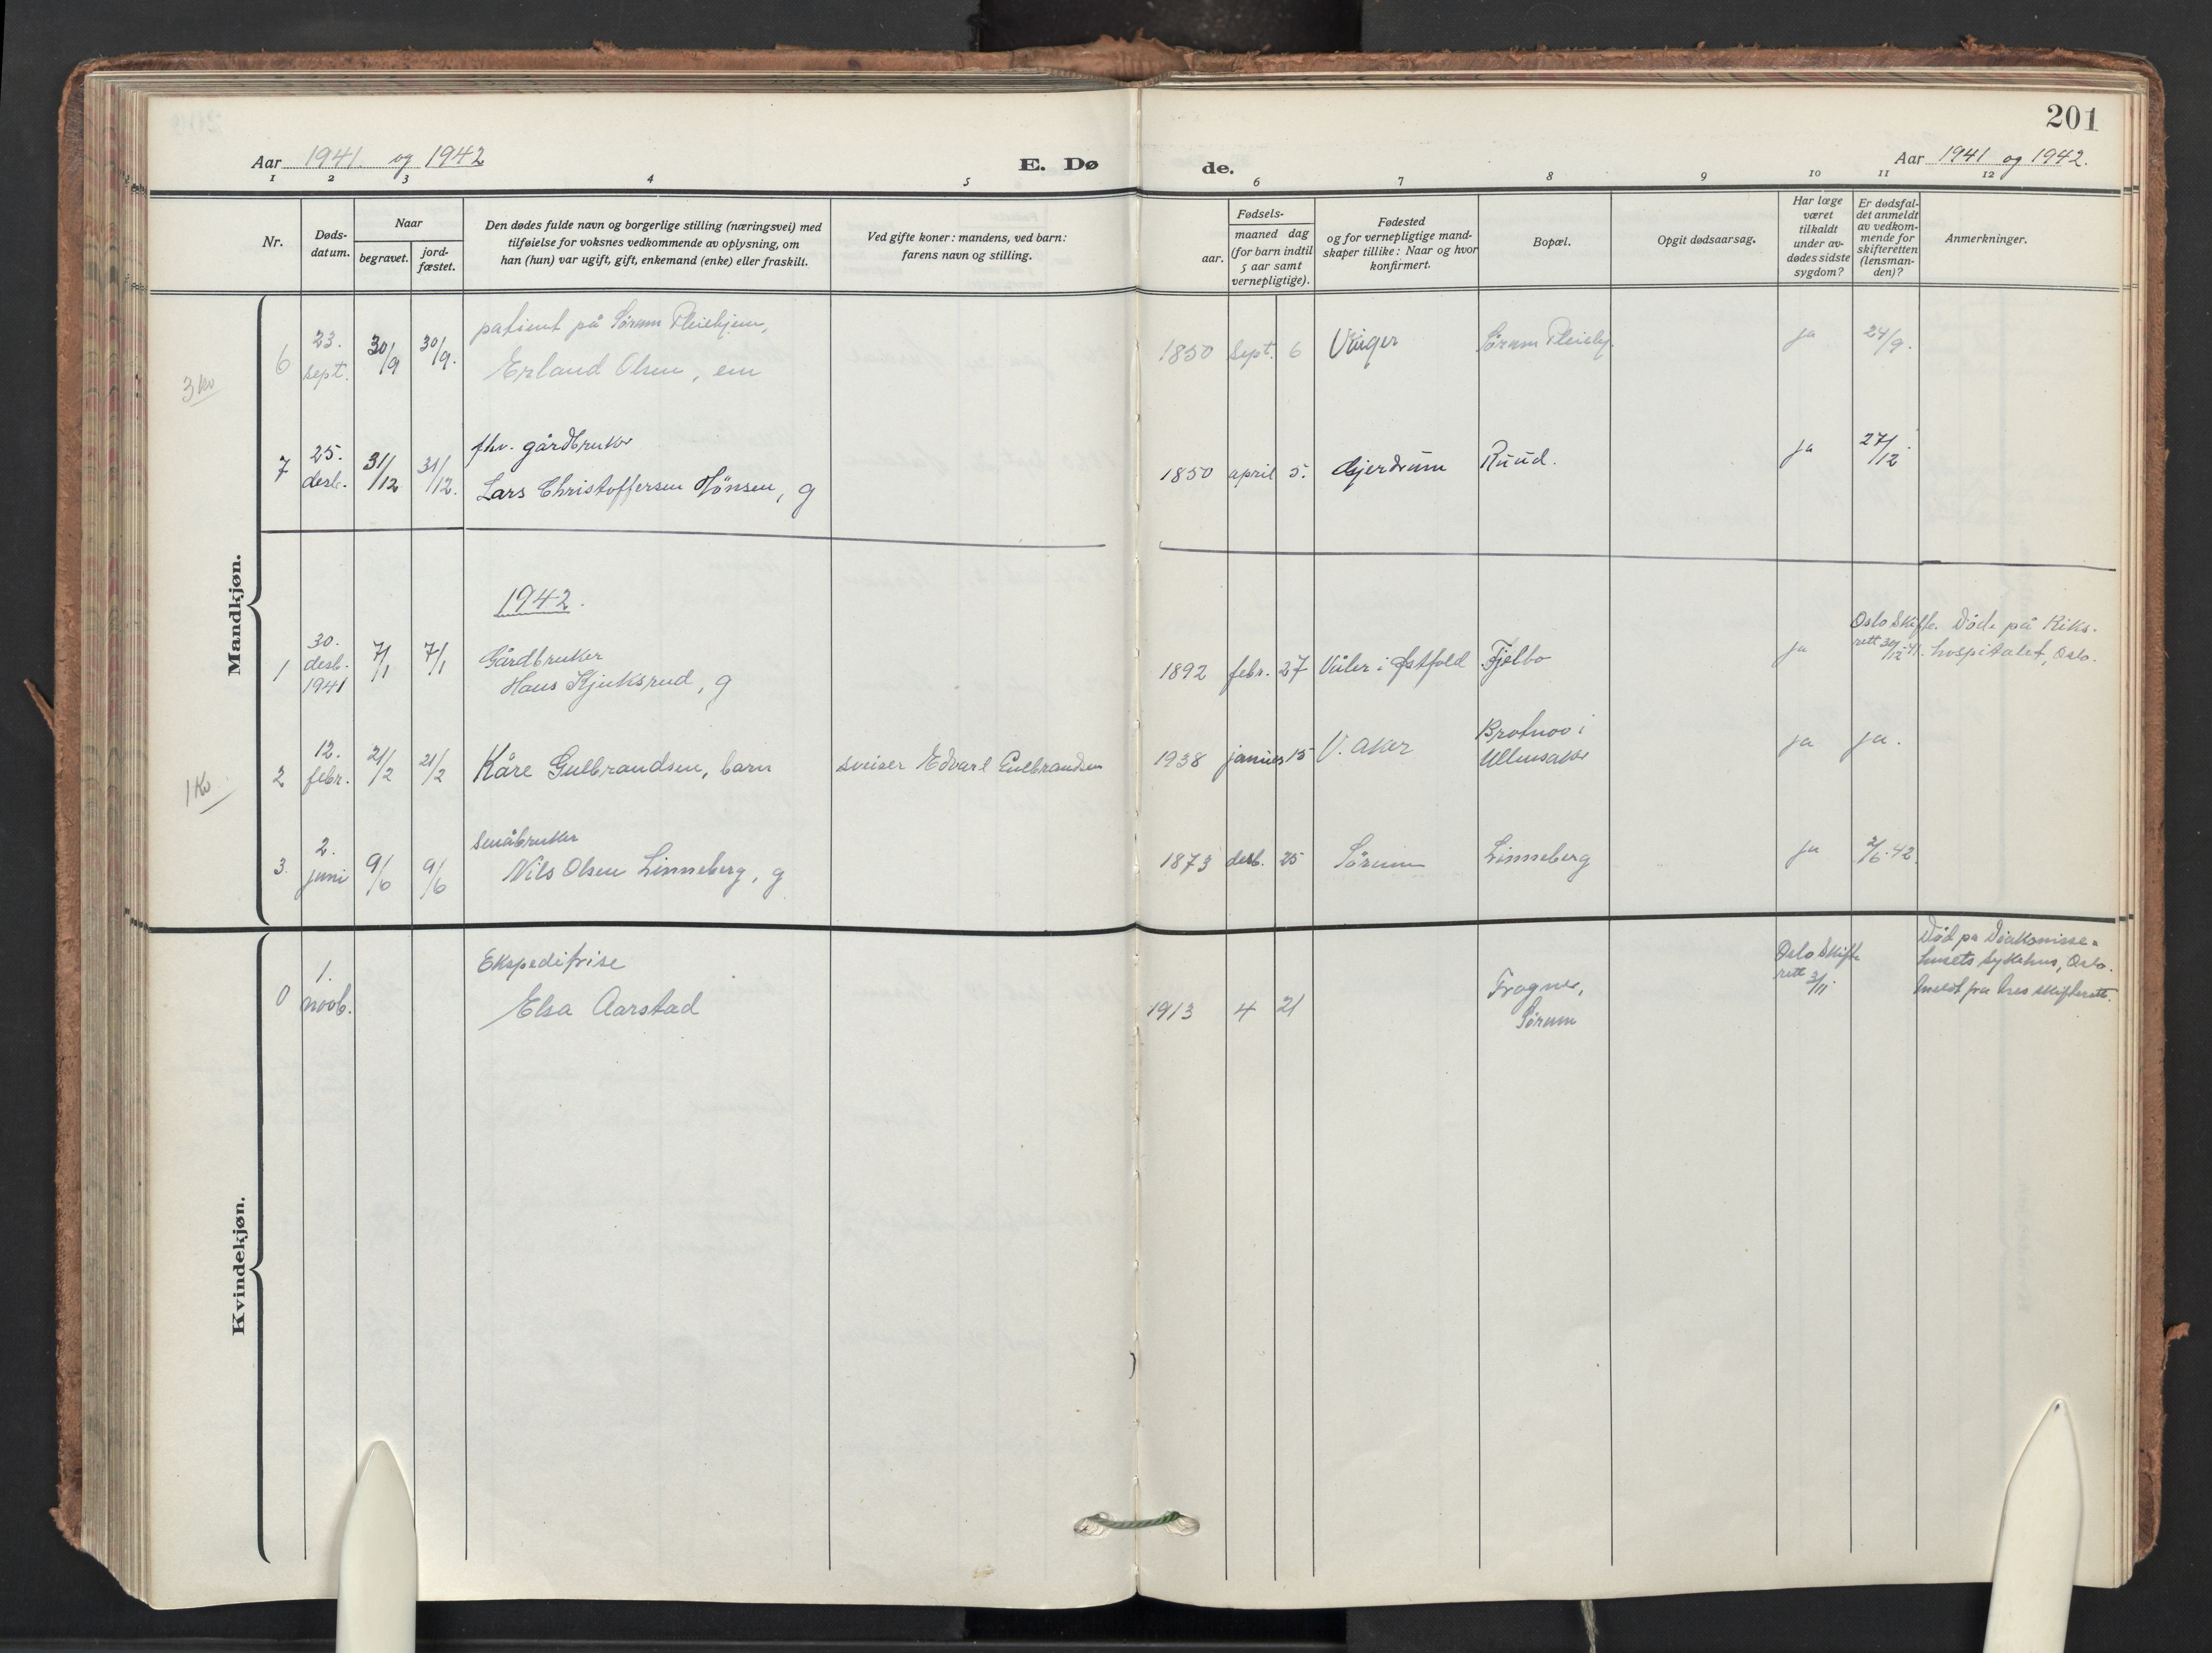 201
Aar 1941 og 1942
E. Dø
de.
Aar 1941 og 1942.
1 2 3 4 5 6 7 8 9 10 11 12
Nr.
Døds-
datum.
Naar
begravet.
jord-
fæstet.
Den dødes fulde navn og borgerlige stilling (næringsvei) med
tilføielse for voksnes vedkommende av oplysning, om
han (hun) var ugift, gift, enkemand (enke) eller fraskilt.
Ved gifte koner: mandens, ved barn:
farens navn og stilling.
Fødsels-
aar.
maaned dag
(for barn indtil
5 aar samt
vernepligtige).
Fødested
og for vernepligtige mand-
skaper tillike: Naar og hvor
konfirmert.
Bopæl.
Opgit dødsaarsag.
Har læge
været
tilkaldt
under av-
dødes sidste
sygdom?
Er dødsfal-
det anmeldt
av vedkom-
mende for
skifteretten
(lensman-
den)?
Anmerkninger.
Mandkjøn.
3 Ko
6 23. sept. 30/9 30/9.
patient på Sørum Pleiehjem,
Erland Olsen, em
1850 Sept. 6 Vinger Sørum Pleiehj. ja 24/9.
7 25. desb. 31/12 31/12.
fhv. gårdbruker
Lars Christoffersen Hønsen, g
1850 april 5. Gjerdrum Ruud. ja 27/12.
1942.
1 30. desb. 1941 7/1 7/1
Gårdbruker
Hans Kjuksrud, g
1892 febr. 27 Våler i Østfold Fjelbo ja
Oslo Skifte-
rett 30/12-41.
Døde på Riks-
hospitalet, Oslo.
1 Ko
2 12. febr. 21/2 21/2
Kåre Gulbrandsen, barn
sveiser Edvard Gulbrandsen
1938 januar 15 U. aker
Brotnov i
Ullensaker
ja ja.
3. 2. juni 9/6 9/6
Småbruker
Nils Olsen Linneberg, g
1873 desb. 25 Sørum Linneberg ja 2/6.42.
Kvindekjøn.
0 1. novb.
Ekspeditrise
Elsa Aarstad
1913 4 21
Frogner,
Sørum
Oslo Skifte
rett 3/11.
Død på Diakonisse-
husets Sykehus, Oslo.